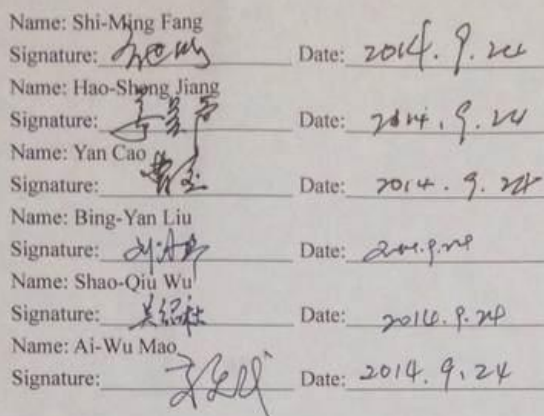 Name: Shi-Ming Fang
Signature: Date: 2014. 9. 24
Name: Hao-Sheng Jiang
Signature: Date: 2014. 9. 24
Name: Yan Cao
Signature: Date: 2014. 9. 24
Name: Bing-Yan Liu
Signature: Date:
Name: Shao-Qiu Wu
Signature: Date: 2014. 9. 24
Name: Ai-Wu Mao
Signature: Date: 2014. 9. 24